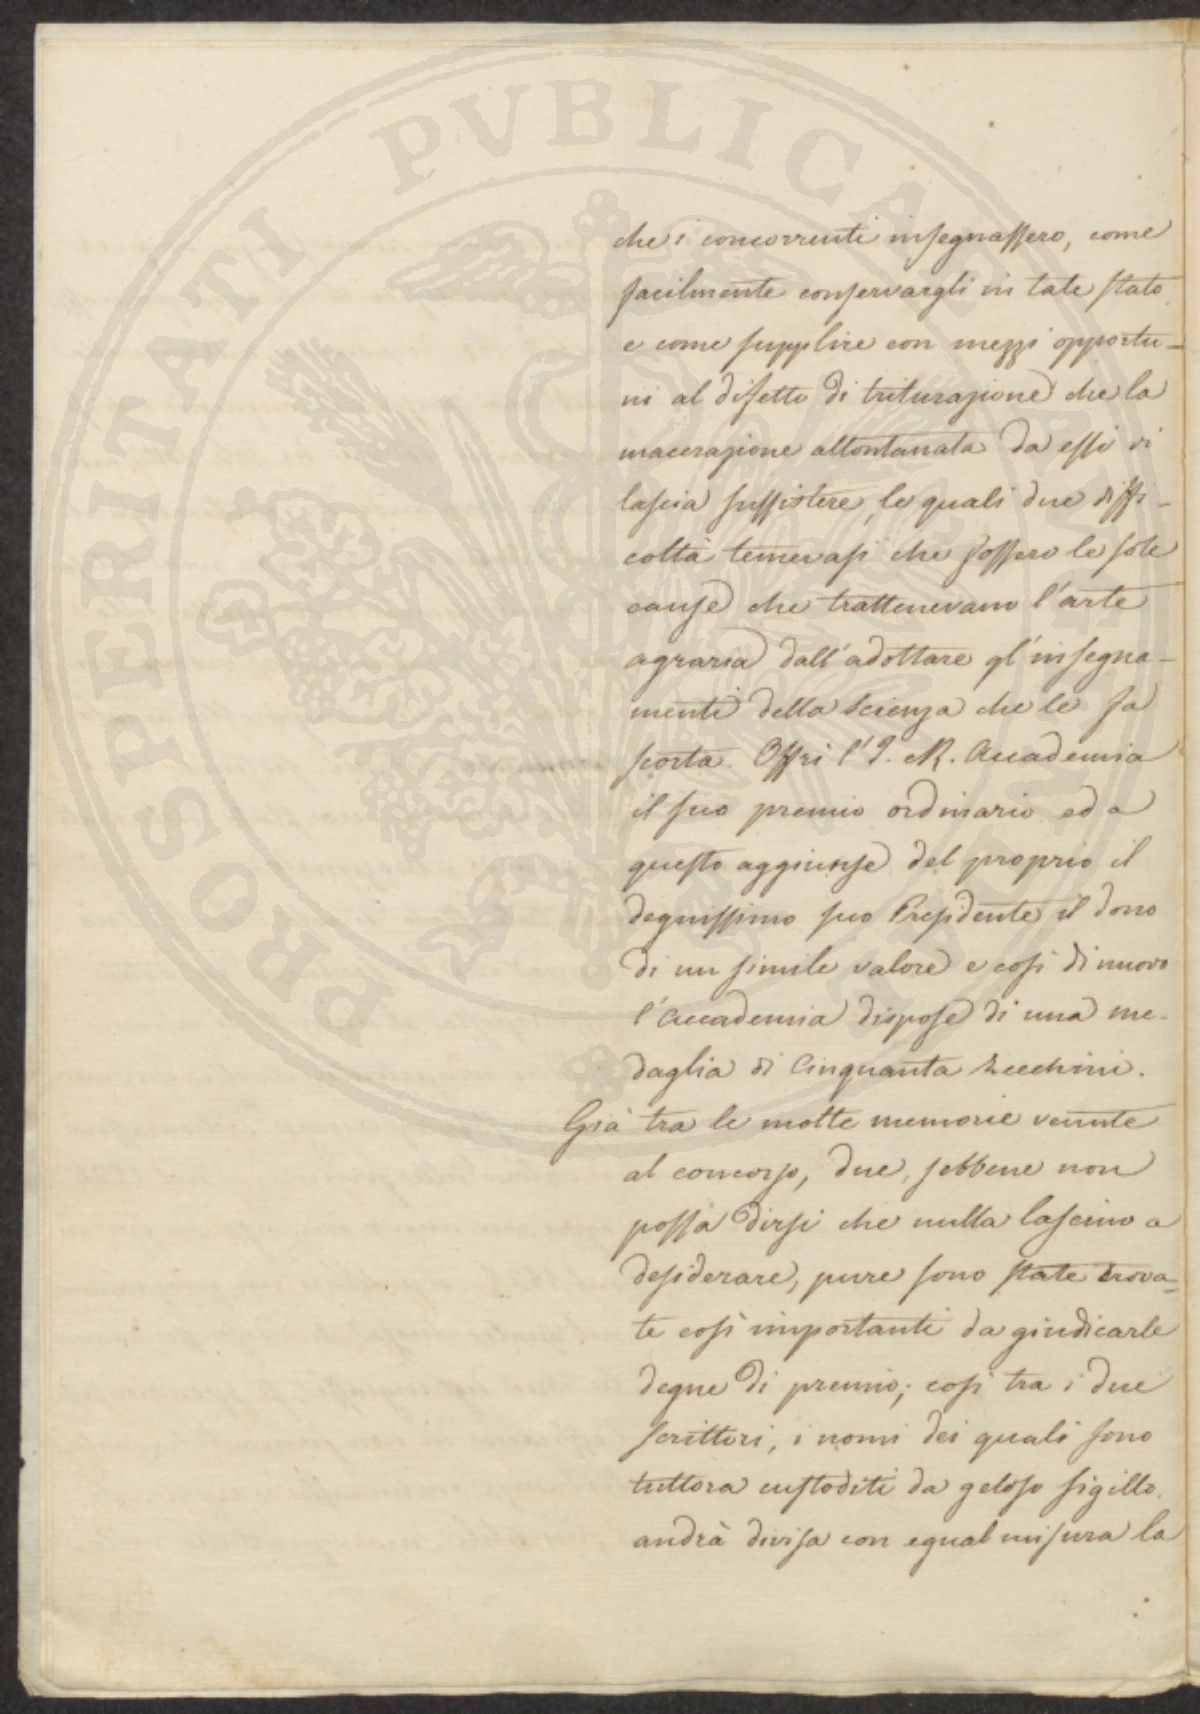 PROSPERITATI PVBLICAE
che i concorrenti insegnassero, come
facilmente conservargli in tale stato
e come supplire con mezzi opportu-
ni al difetto di triturazione che la
macerazione allontanata da essi vi
lascia sussistere, le quali due diffi-
coltà temevasi che fossero le sole
cause che trattenevano l'arte
agraria dall'adottare gl'insegna-
menti della scienza che le fa
scorta. Offrì l'I. R. Accademia
il suo premio ordinario ed a
questo aggiunse del proprio il
degnissimo suo Presidente il dono
di un simile valore e così di nuovo
l'Accademia dispose di una me-
daglia di Cinquanta Zecchini.
Già tra le molte memorie venute
al concorso, due, sebbene non
possa dirsi che nulla lascino a
desiderare, pure sono state trova-
te così importanti da giudicarle
degne di premio; così tra i due
scrittori, i nomi dei quali sono
tuttora custoditi da geloso sigillo,
andrà divisa con egual misura la